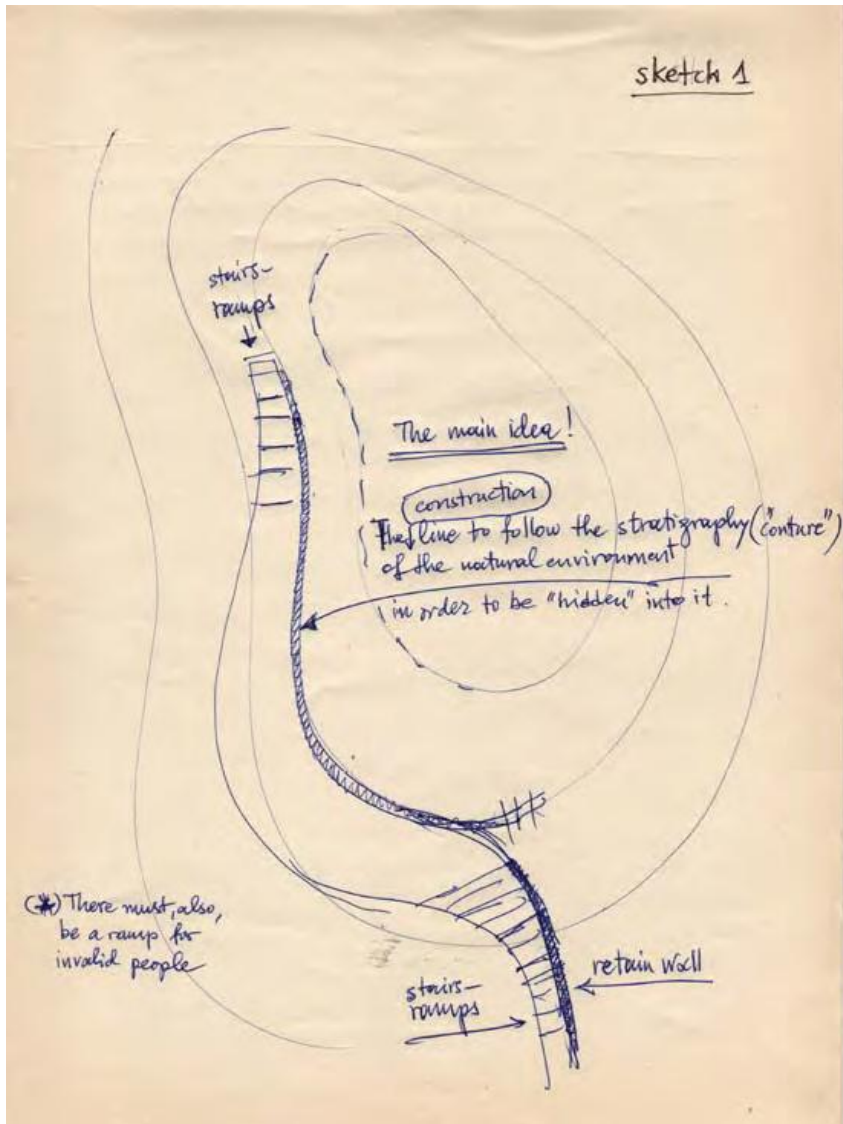 sketch 1
stairs-
ramps
The main idea!
construction
The line to follow the stratigraphy ("conture")
of the natural environment
in order to be "hidden" into it.
(*) There must, also,
be a ramp for
invalid people
retain wall
stairs-
ramps